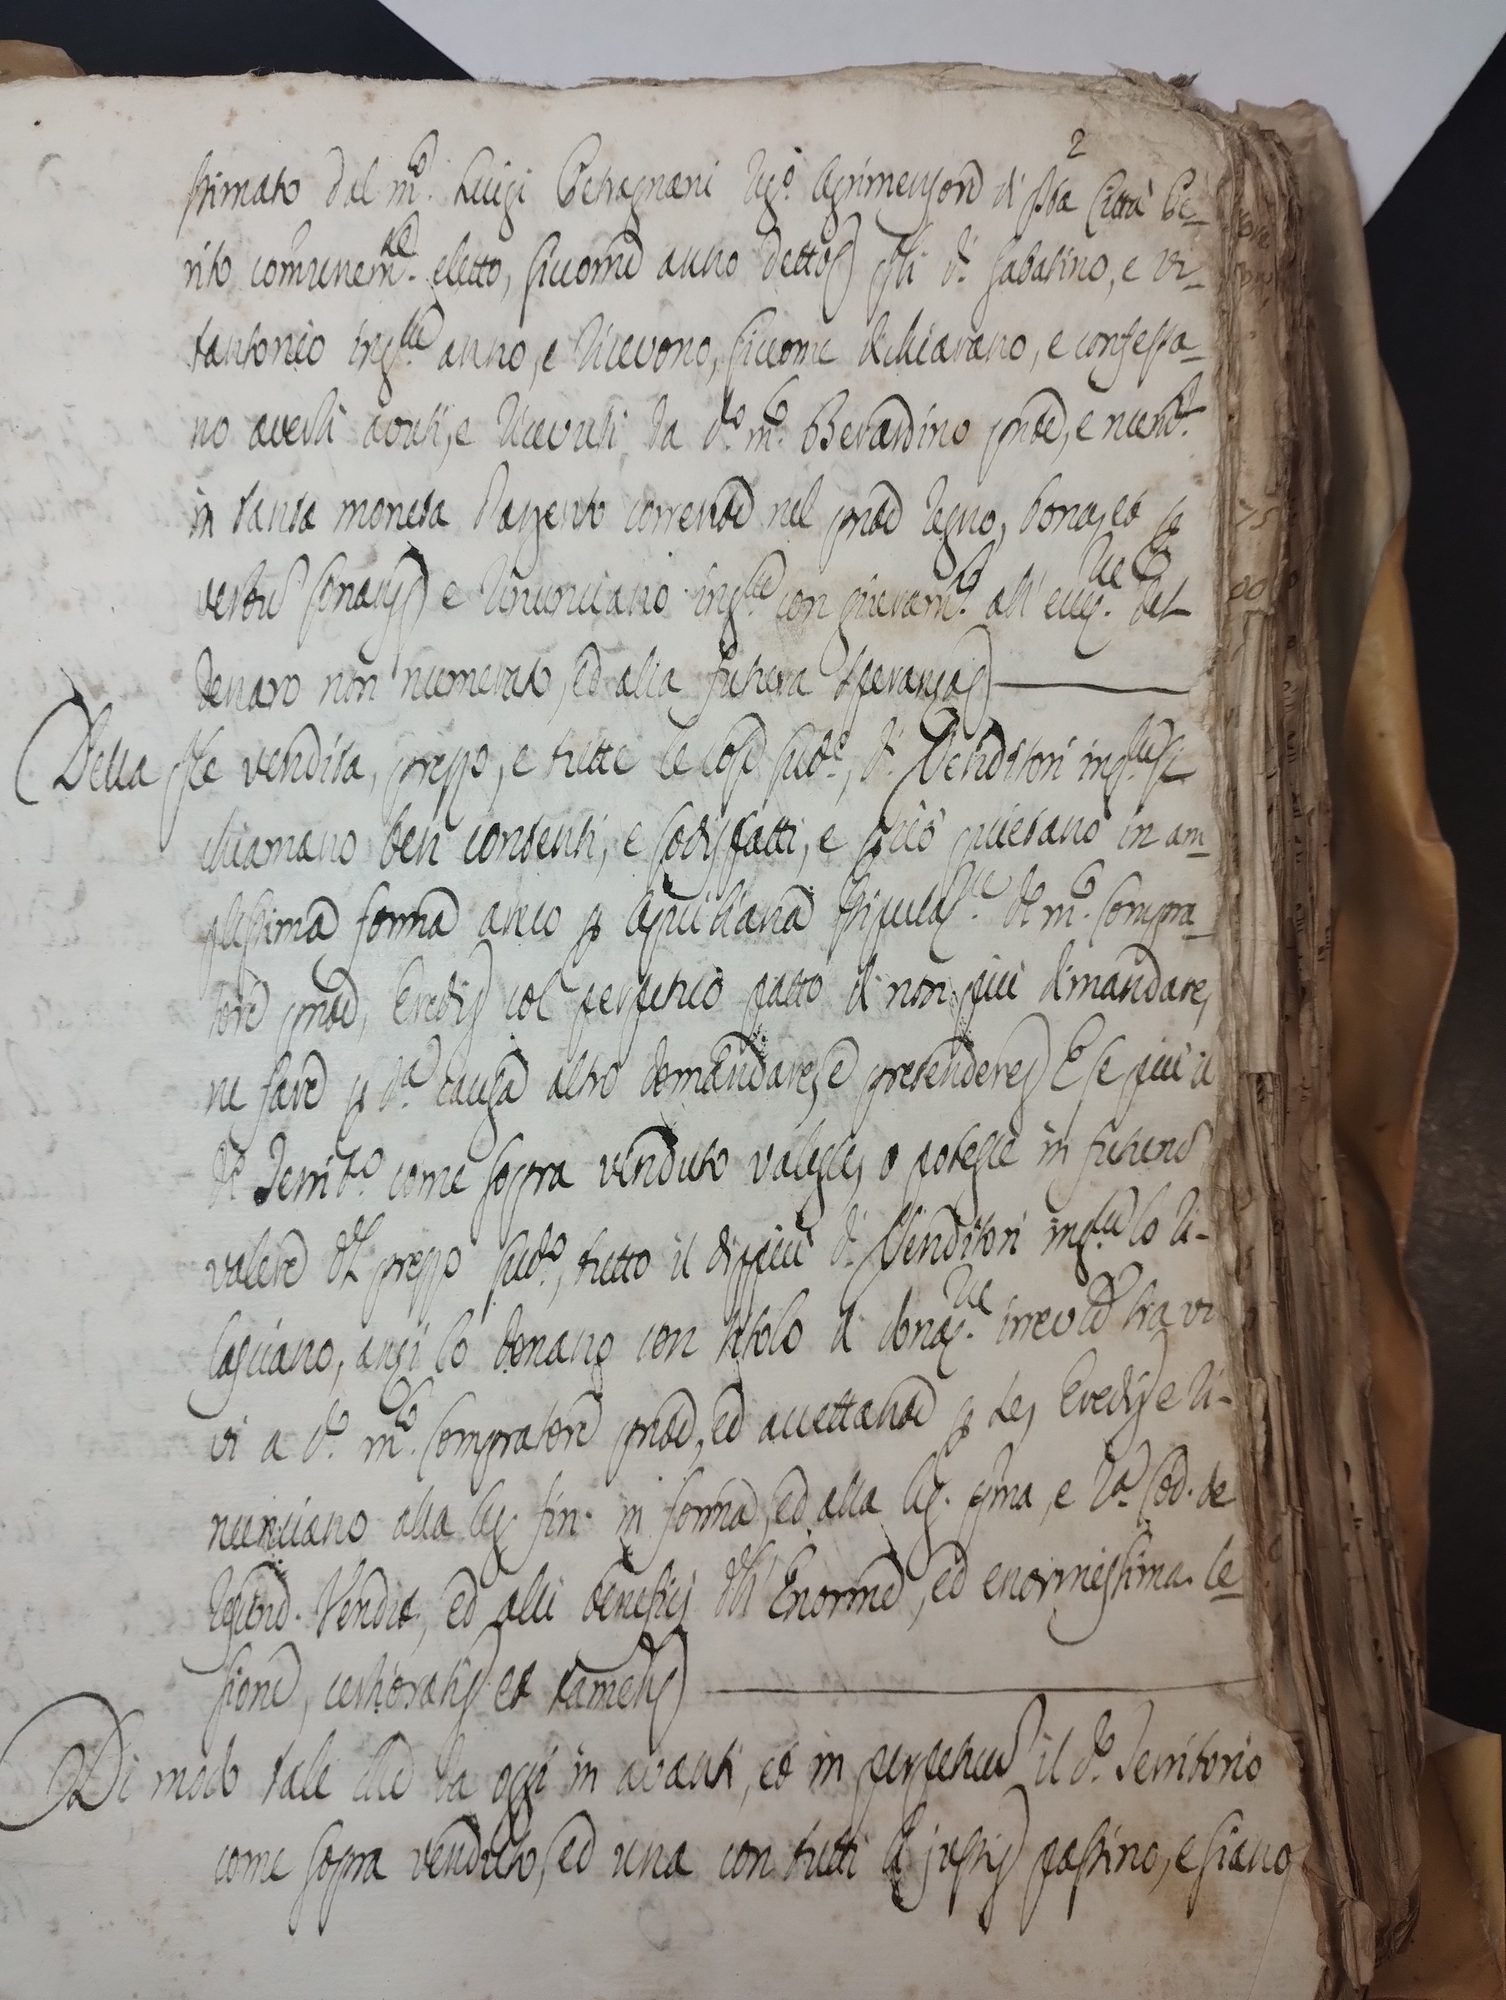 2
stimato dal m.co Luigi Petragnani Reg.o Agrimensore di q.sta Città Pe-
rito comunem.te eletto, siccome anno detto, q.sti d.i Sabatino, e Vi-
tantonio ins.me anno, e ricevono, siccome dichiarano, e confessa-
no averli avuti, e ricevuti da d.o m.co Berardino pnte, e num.ti
in tanta moneta d'argento corrente nel pnte Regno, bona, et
e rinunciano ins.me con giuram.to all' ecc.ne del
denaro non numerato, ed alla futura speranza
Della q.le vendita, prezzo, e tutte le cose sud.e, d.i Venditori ins.me si
chiamano ben contenti, e sodisfatti, e perciò quietano in am-
plissima forma anco per Aquiliana stipulaz.ne d.o m.co Compra-
tore pnte, Eredi col perpetuo patto di non più dimandare,
ne fare per d.a causa altro domandare, e pretendere E se più il
d.o Territ.o come sopra venduto valesse, o potesse in futuro
valere del prezzo sud.o, tutto il dippiù d.i Venditori ins.me lo ri-
lasciano, anzi lo donano con titolo di donaz.ne irrevo.le tra vi-
vi a d.o m.co Compratore pnte, ed accettante per se, Eredi e ri-
nunciano alla leg. fin. in forma, ed alla leg. p.ma, e 2.a Cod. de
rescind. Vendit, ed alli beneficj dell' Enorme, ed enormissima le-
sione, certiorati et tametsi
Di modo tale che da oggi in avanti, et in perpetuum il d.o Territorio
come sopra venduto, ed una con tutti li justi passino, e siano